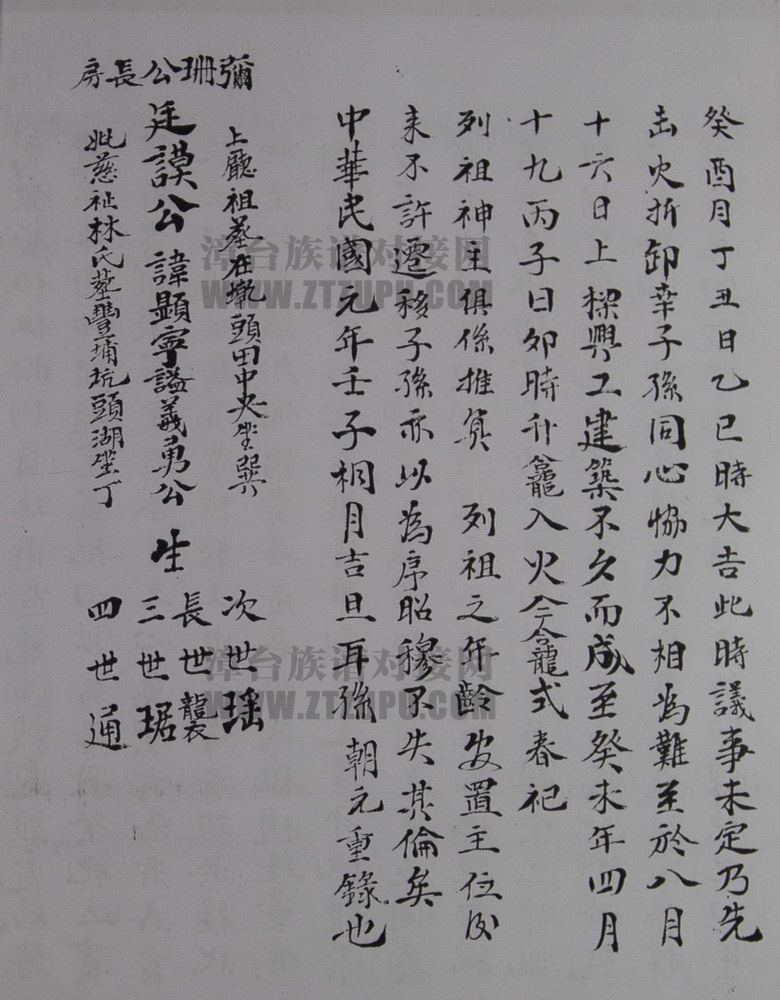 癸酉月丁丑日乙巳時大吉此時議事未定乃先
出火折卸幸子孫同心協力不相為難至於八月
十六日上樑興工建築不久而成至癸未年四月
十九丙子日卯時升龕入火今龕式春祀
列祖神主俱係推算 列祖之年齡安置主位以
来不許遷移子孫亦以為序昭穆不失其倫矣
中華民國元年壬子桐月吉旦耳孫朝元重錄也
彌珊公長房
上廳祖墓在墩頭田中央坐巽
廷謨公諱顯寧謚義勇公 生
妣慈祉林氏塟豐埔坑頭湖坐丁
次世瑶
長世襲
三世琚
四世通
漳台族谱对接网
WWW.ZTZUPU.COM
漳台族谱对接网
WWW.ZTZUPU.COM